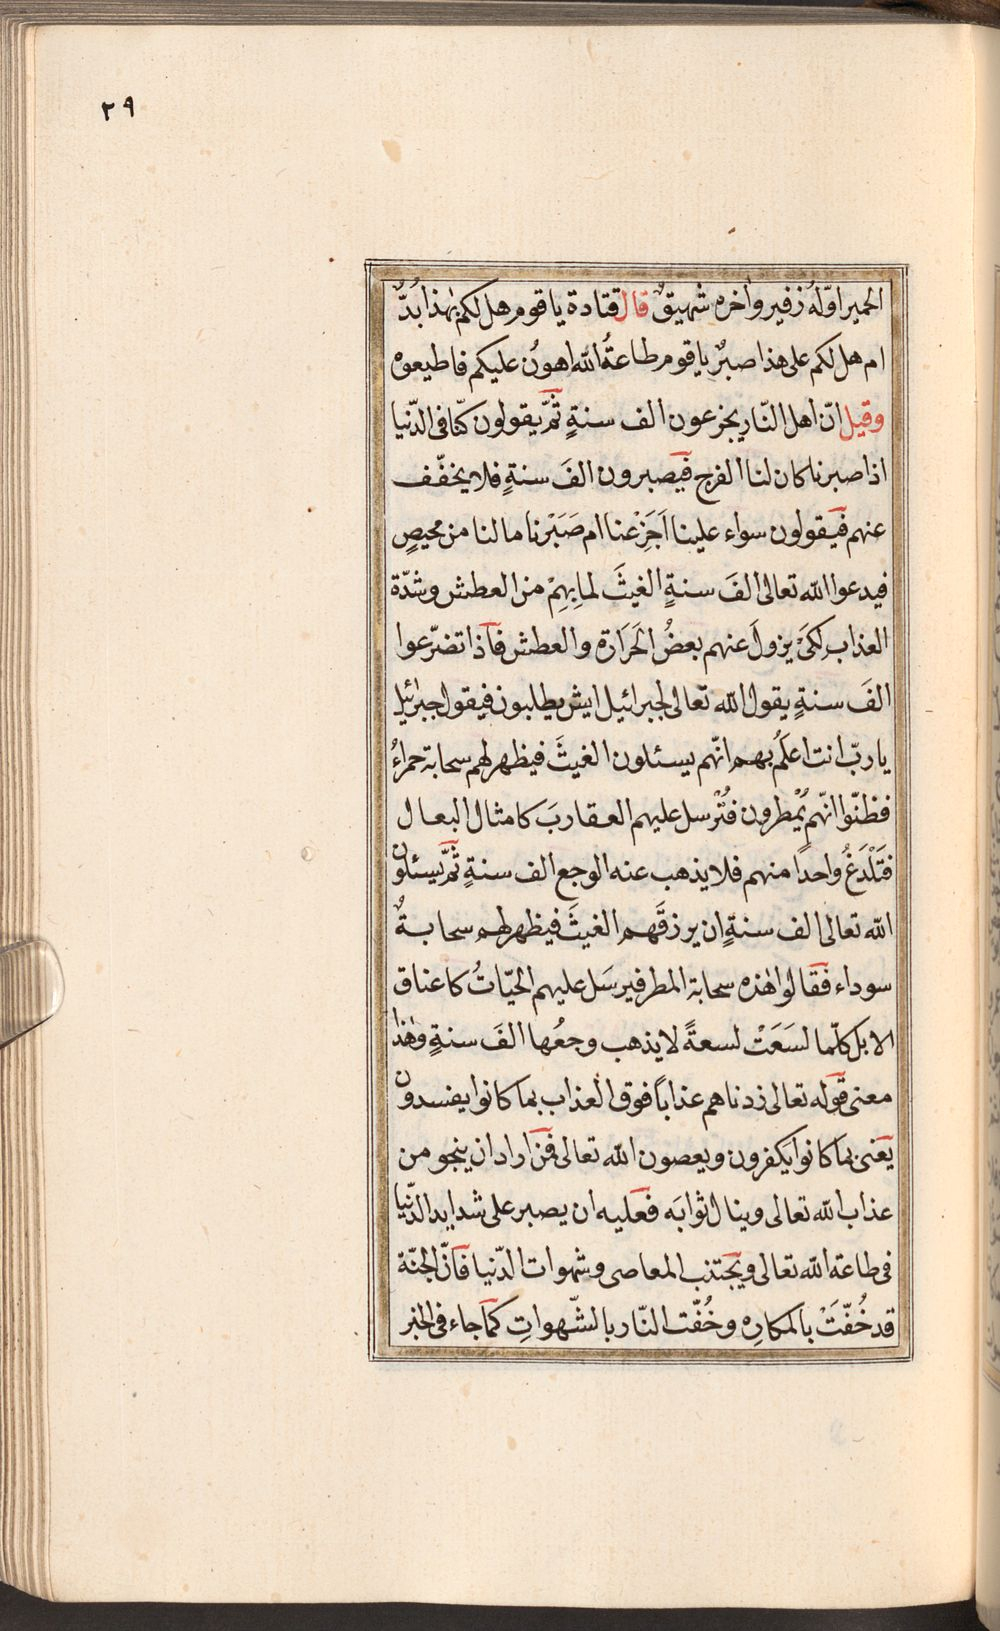 ٢٩
الحمير اوّلهُ زفير واٰخره شهيقٌ قال قتادة ياقوم هل لكم بهٰذا بُدٌّ
ام هل لكم على هذا صبرٌ ياقوم طاعةُ اللّٰه اهونُ عليكم فاطيعوه
وقيل انّ اهل النّار يجزعون الف سنةٍ ثمّ يقولون كنّا فى الدّنيا
اذا صبرنا كان لنا الفرج فيصبرون الفَ سنةٍ فلا يخفّف
عنهم فيقولون سواء علينا اَجَزِعْنا ام صَبَرْنا مالنا من محيصٍ
فيدعوا اللّٰه تعالى الفَ سنةٍ الغيثَ لما بِهِمْ من العطش وشدّة
العذاب لِكَىْ يزولَ عنهم بعضُ الحَرَارة والعطش فاذا تضرّعوا
الفَ سنةٍ يقول اللّٰه تعالى لجبرائيل ايش يطلبون فيقول جبرائيل
ياربّ انت اعلَمُ بهم انّهم يسئلون الغيثَ فيظهر لهم سحابة حمراءُ
فظنّوا انّهم يُمْطرون فتُرْسل عليهم العقاربَ كامثال البعال
فَتَلْدَغُ واحداً منهم فلا يذهب عنه الوجع الف سنةٍ ثمّ يسئلون
اللّٰه تعالى الف سنةٍ ان يرزقَهم الغيثَ فيظهر لهم سحابةٌ
سوداء فقالوا هٰذه سحابة المطر فيرسَل عليهم الحيّاتُ كاعناق
الابل كلّما لسَعَتْ لسعةً لا يذهب وجعُها الفَ سنةٍ وهٰذا
معنى قوله تعالى زدناهم عذاباً فوق العذاب بما كانوا يفسدون
يعنى بما كانوا يكفرون ويعصون اللّٰه تعالى فمن اراد ان ينجو من
عذاب اللّٰه تعالى وينال ثوابَه فعليه ان يصبر على شدايد الدّنيا
فى طاعة اللّٰه تعالى ويجتنب المعاصى وشهوات الدّنيا فانّ الجنّة
قد خُفّتَتْ بالمكارِه وخُفّت النّار بالشّهواتِ كما جاء فى الخبر